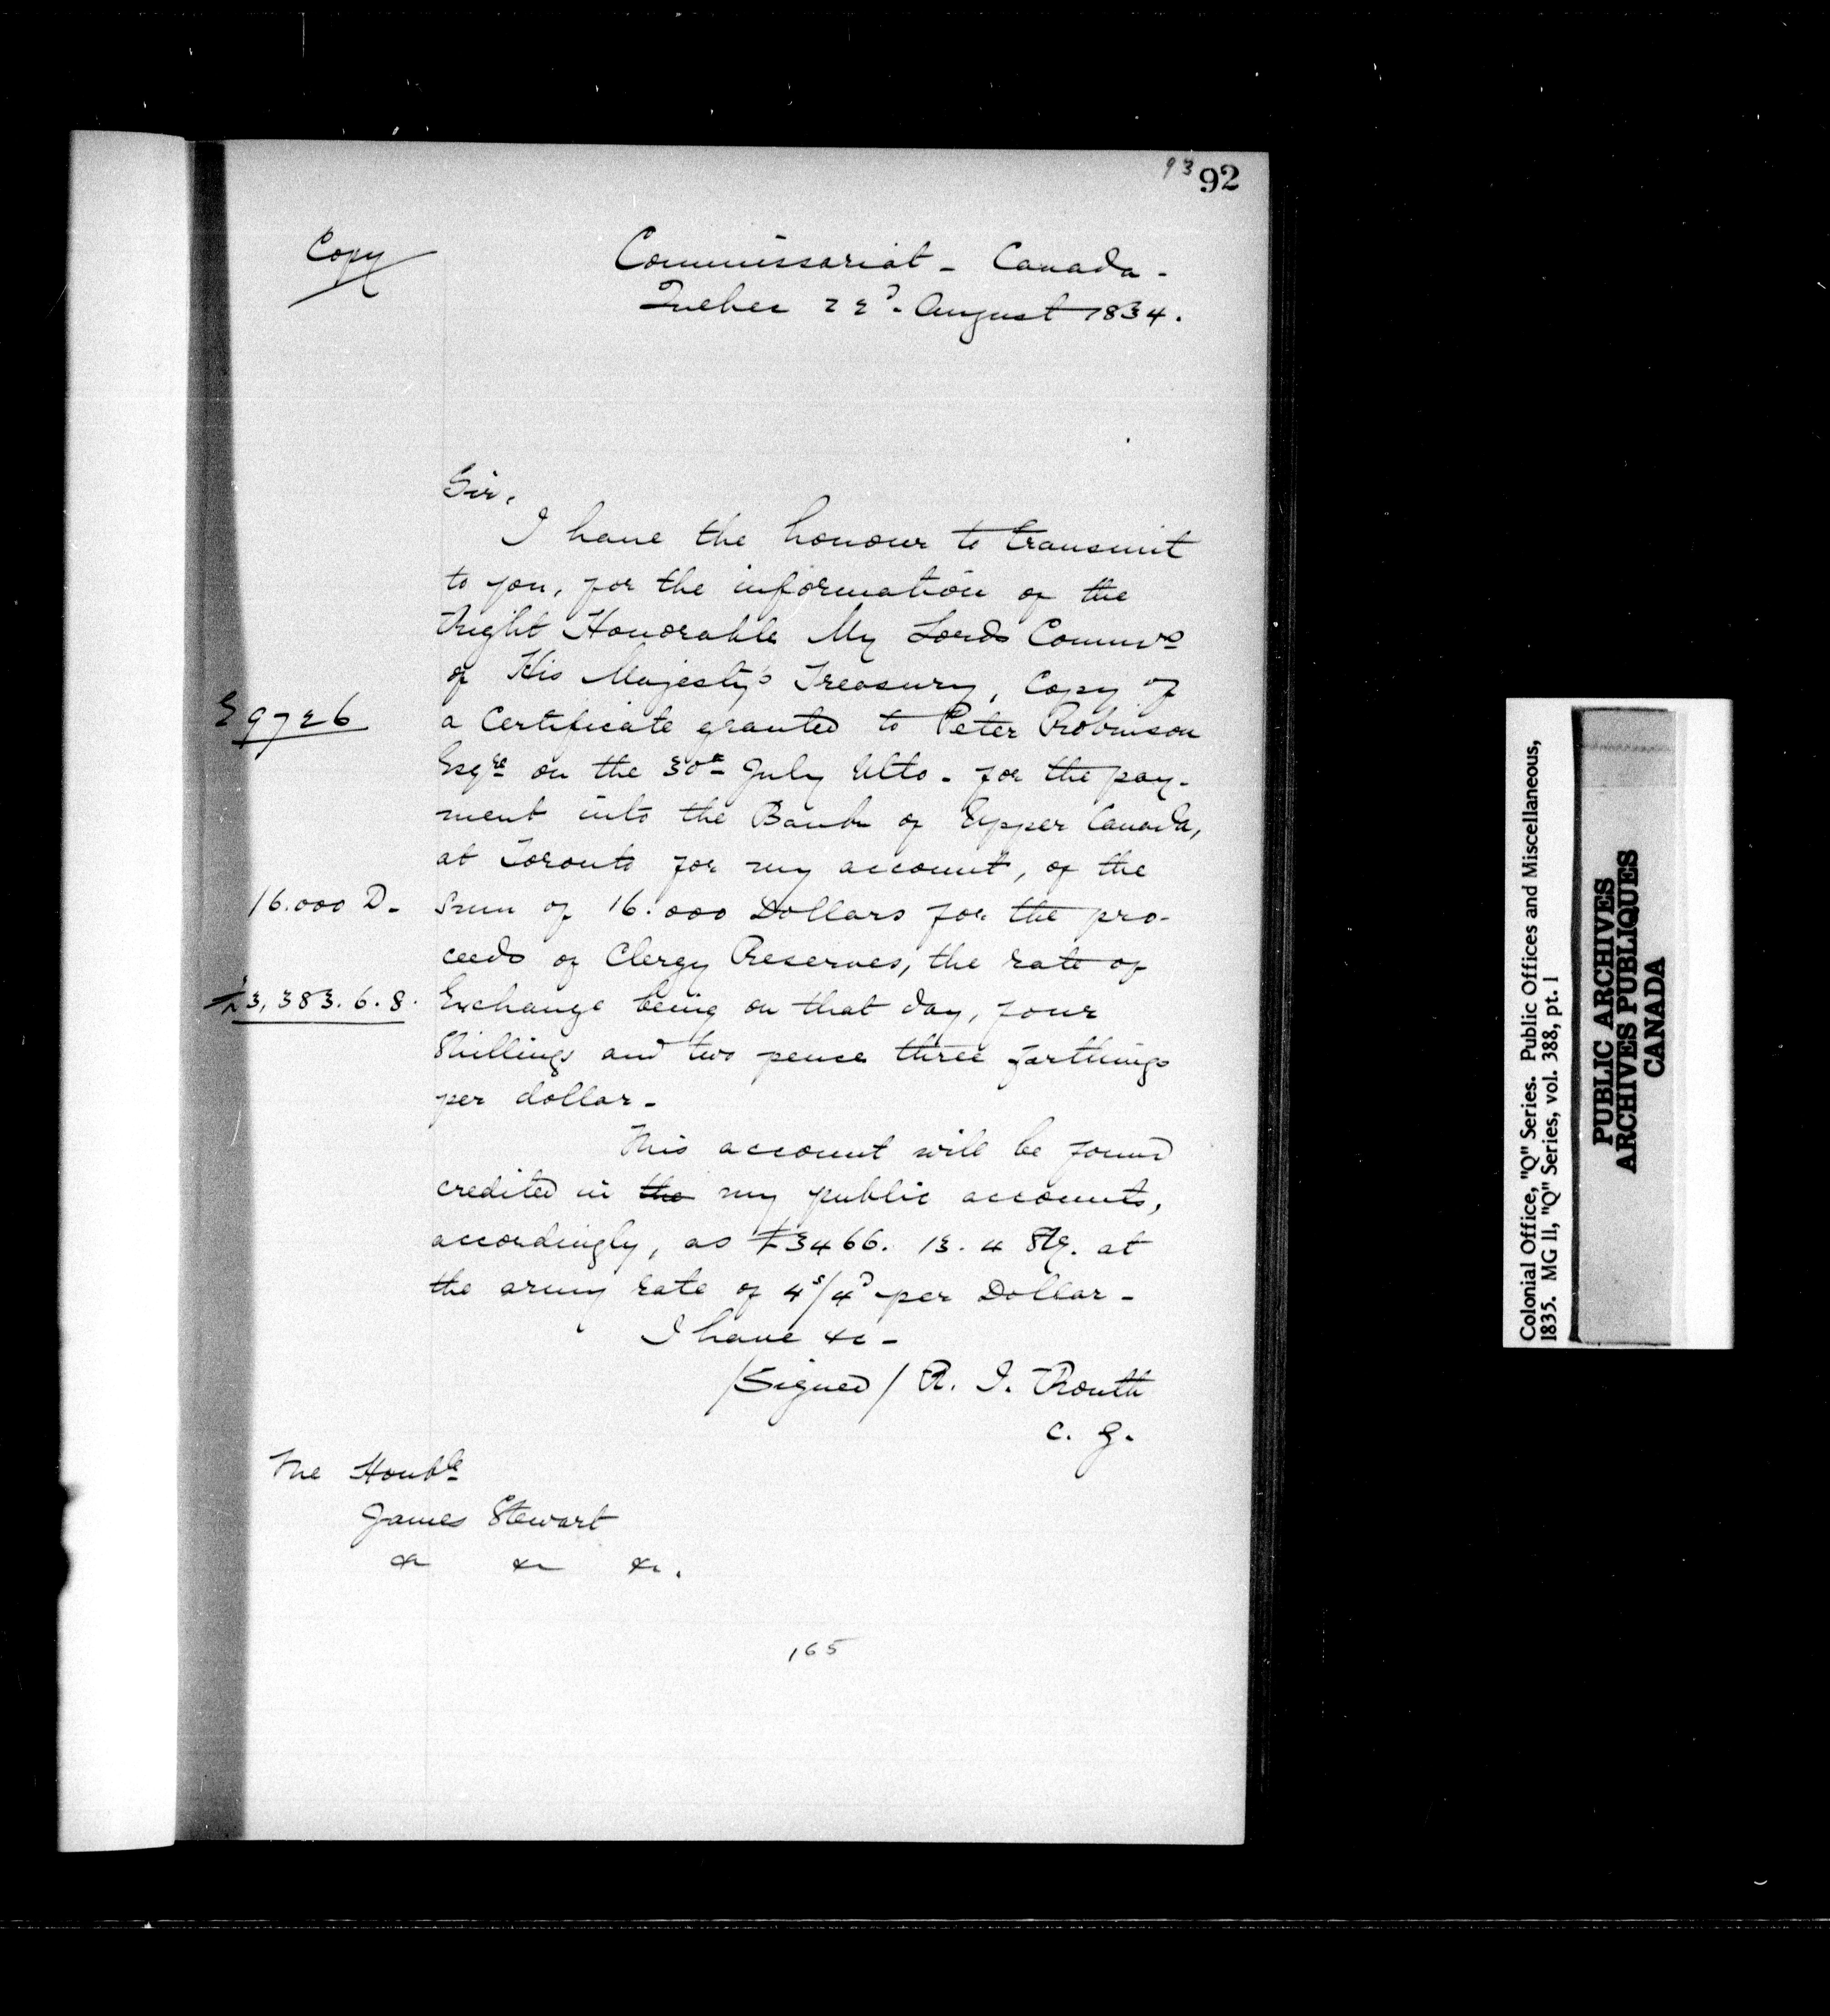 93 92
Copy
Commissariat - Canada -
Quebec 22d. August 1834.
Sir,
I have the honour to transmit
to you, for the information of the
Right Honorable My Lords Commrs
of His Majesty's Treasury, Copy of
a Certificate granted to Peter Robinson
Esqre on the 30th July Ulto - for the pay-
ment into the Bank of Upper Canada,
at Toronto for my account, of the
Sum of 16.000 Dollars for the pro-
ceeds of Clergy Reserves, the rate of
Exchange being on that day, four
Shillings and two pence three farthings
per dollar -
9726
16.000 D -
£3,383.6.8.
This account will be found
credited in the my public accounts,
accordingly, as £3466. 13. 4 Stg. at
the army rate of 4s/4d per Dollar -
I have &c -
/Signed/ R. I. Routh
C. G.
The Honble
James Stewart
&c &c &c.
165
Colonial Office, "Q" Series. Public Offices and Miscellaneous,
1835. MG 11, "Q" Series, vol. 388, pt. 1
PUBLIC ARCHIVES
ARCHIVES PUBLIQUES
CANADA